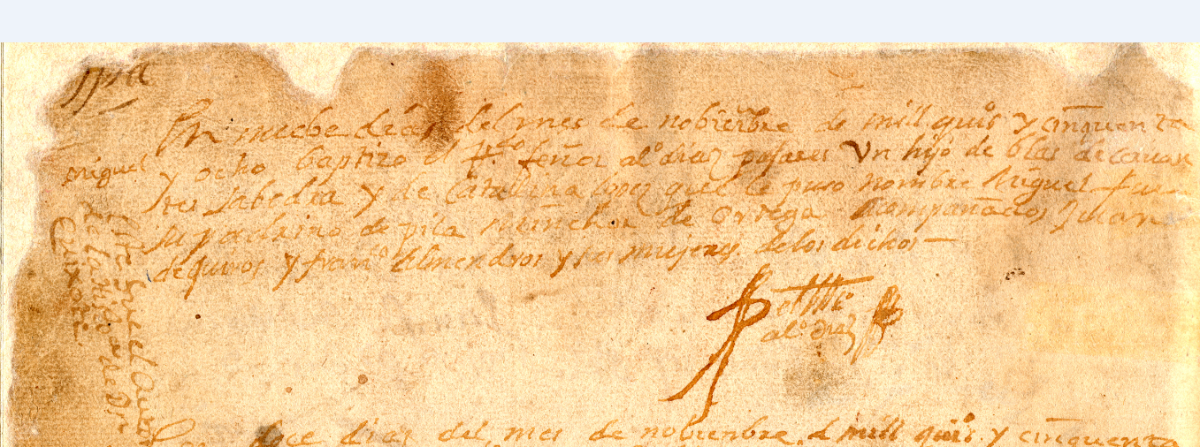 miguel
En nuebe dias del mes de nobienbre de mill quis y cinquenta
y ocho baptizo el Rdo señor alº diaz pajares Un hijo de blas de cervan
tes sabedra y de Catalina lopez quel le puso nombre Miguel fue
su padrino de pila melchor de ortega acompañados Juan
de quiros y franº almendros y sus mujeres de los dichos
alº diaz
Este fue el Autor
de la de Dn
Quixote
doce dias del mes de nobienbre d mill quis y cinquenta